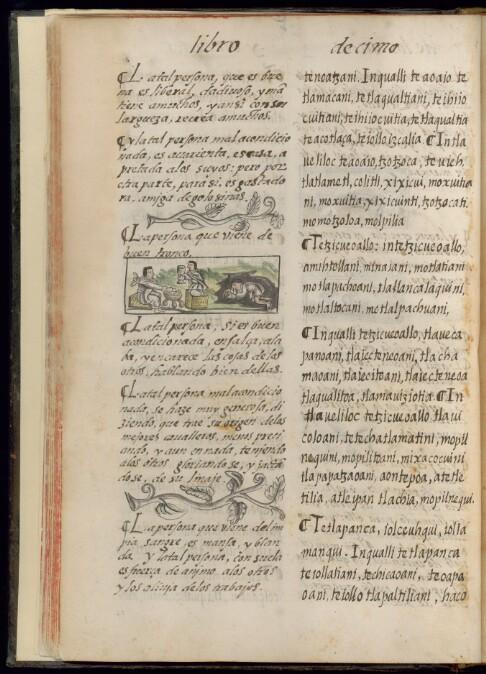 libro decimo
¶ La tal persona, que es bue
na es liberal, dadiuoso, y mã
tiene amuchos, y ansi con su
largueza, recrea amuchos.
¶ Y la tal persona mal acondicio
nada, es auarienta, escasa, a
pretada alos suyos: pero por
otra parte, para si, es gastado
ra, amiga de golosinas.
¶ La persona que viene de
buen tronco.
¶ La tal persona, si es buen
acondicionada, enfalça, ala
ba, y encarece las cosas delos
otros, hablando bien dellas.
¶ La tal persona mal acondicio
nada, se haze muy generosa, di
ziendo, que trae su origen delos
mejores caualleros, menos preci
ando, y aun en nada, teniendo
alos otros gloriandose, y jactã
dose, de su linaje.
¶ La persona que viene de lim
pia sangre, es mansa, y blan
da y la tal persona, consuela
esfuerça de animo alos otros
y los aliuia delos trabajos.
tenoatzani. In qualli te aoaio te
tlamacani, tetlaqualtiani, te ihiio
cuitiani, teihiiocuitia, tetlaqualtia
teacotlaça, teiolloizcalia ¶ In tla
veliloc teaoaio, tzotzoca, teuieh.
tlatlametl, colitli, xixicui, moxuitia
ni, moxuitia, xixicuinti, tzotzocati.
momotzoloa, molpilia
¶ Tetzicueoallo: in tetzicueoallo,
amihtollani, minaiani, motlatiani
motlapachoani, tlallancalaquini,
motlaltocani, motlalpachuani.
¶ In qualli tetzicueoallo, tlaueca
panoani, tlaiecteneoani, tlacha
maoani, tlaiecitoani, tlaiecteneoa
tlaqualitoa, tlamauiziotia ¶ In
tlaueliloc tetzicueoallo tlaui
coloani, tetechatlamatini, mopil
nequini, mopilitoani, mixacocuini
tlapapatzaoani, aontepoa, atetle
tilia, atle ipan tlachia, mopilnequi.
¶ Tetlapanca, iolceuhqui, iolia
manqui. In qualli tetlapanca
teiollaliani, techicaoani, teoapa
oani, teiollo tlapaltiliani, haco